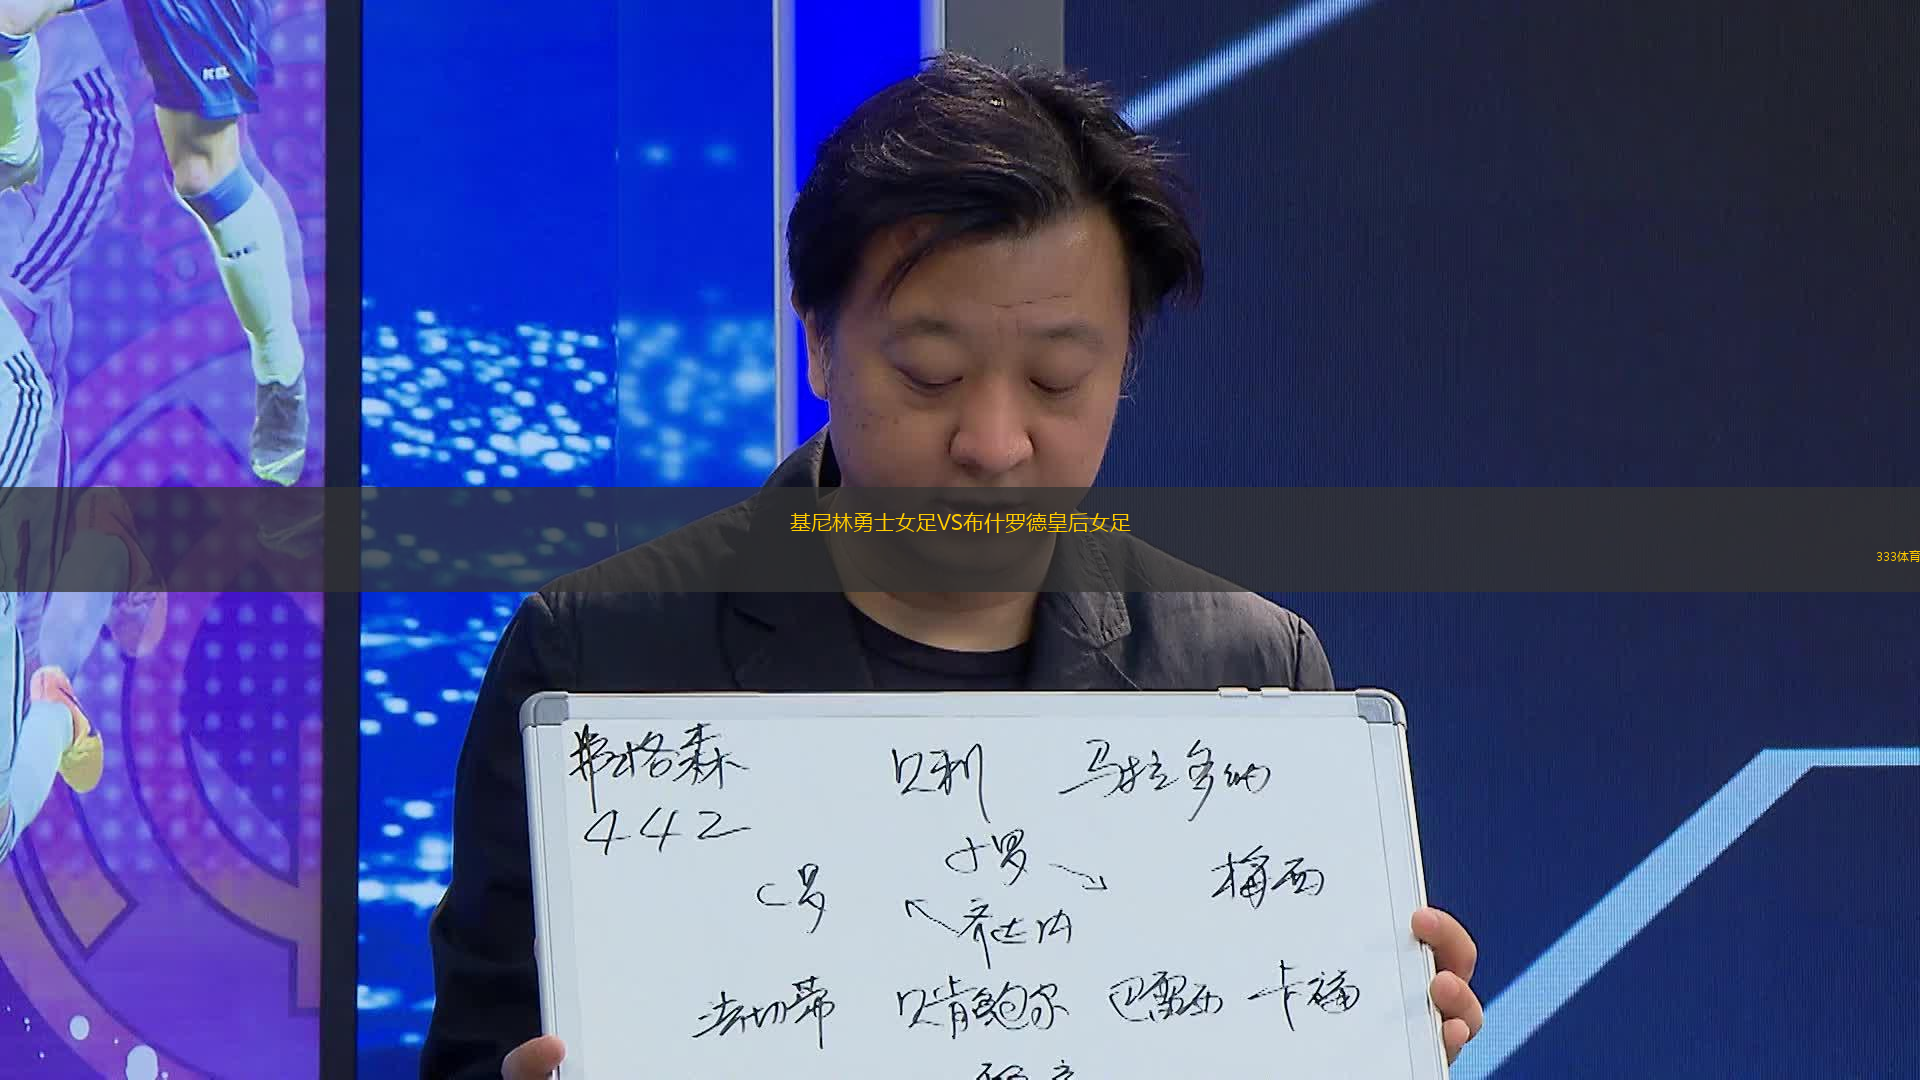 KELME
基尼林勇士女足VS布什罗德皇后女足
333体育
弗格森 贝利 马拉多纳
442
C罗 小罗 梅西
齐达内
法切蒂 贝肯鲍尔 巴雷西 卡福